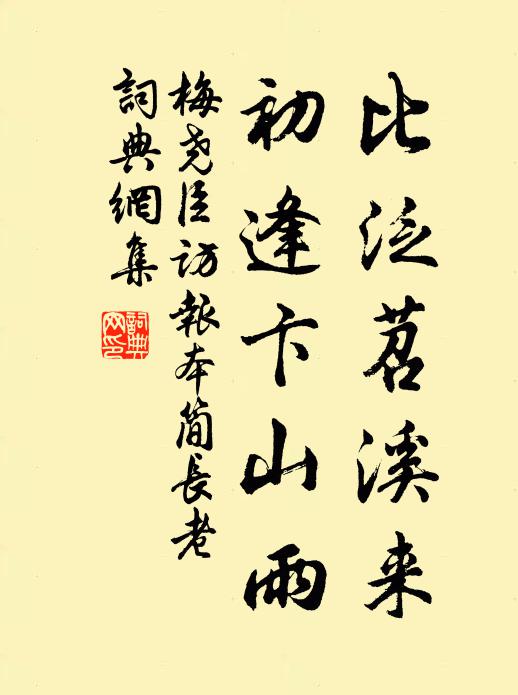 比泛苕溪来
初逢卞山雨
梅尧臣访報本简長老
詞典網集
詞典网印